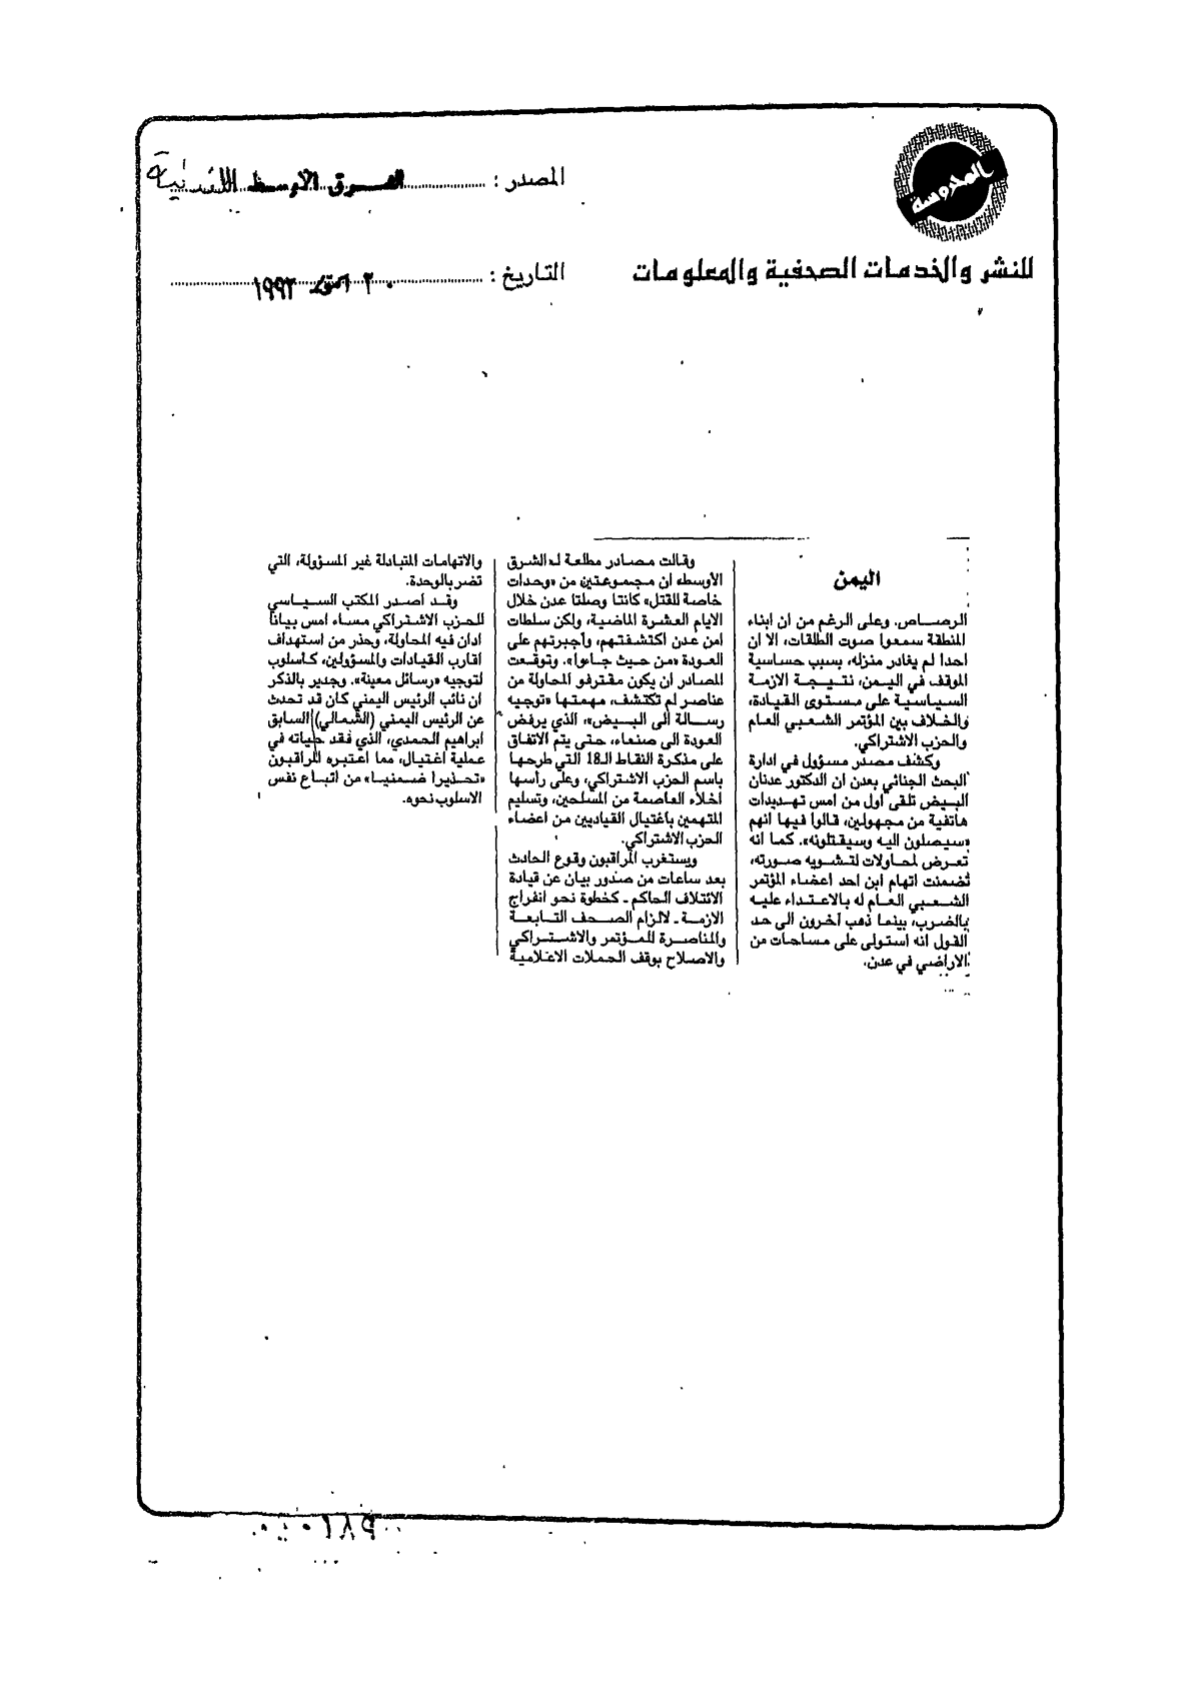 المحروسة
للنشر والخدمات الصحفية والمعلومات
المصدر : الشرق الاوسط اللندنية
التاريخ : ٢٠ اكتوبر ١٩٩٣
اليمن
الرصاص. وعلى الرغم من ان ابناء
المنطقة سمعوا صوت الطلقات، الا ان
احدا لم يغادر منزله، بسبب حساسية
الموقف في اليمن، نتيجة الازمة
السياسية على مستوى القيادة،
والخلاف بين المؤتمر الشعبي العام
والحزب الاشتراكي.
وكشف مصدر مسؤول في ادارة
البحث الجنائي بعدن ان الدكتور عدنان
البيض تلقى أول من امس تهديدات
هاتفية من مجهولين، قالوا فيها انهم
«سيصلون اليه وسيقتلونه». كما انه
تعرض لمحاولات لتشويه صورته،
تضمنت اتهام ابن احد اعضاء المؤتمر
الشعبي العام له بالاعتداء عليه
بالضرب، بينما ذهب آخرون الى حد
القول انه استولى على مساحات من
الاراضي في عدن.
وقالت مصادر مطلعة لـ«الشرق
الأوسط» ان مجموعتين من «وحدات
خاصة للقتل» كانتا وصلتا عدن خلال
الايام العشرة الماضية، ولكن سلطات
امن عدن اكتشفتهم، وأجبرتهم على
العودة «من حيث جاءوا». وتوقعت
المصادر ان يكون مقترفو المحاولة من
عناصر لم تكتشف، مهمتها «توجيه
رسالة إلى البيض»، الذي يرفض
العودة الى صنعاء، حتى يتم الاتفاق
على مذكرة النقاط الـ18 التي طرحها
باسم الحزب الاشتراكي، وعلى رأسها
اخلاء العاصمة من المسلحين، وتسليم
المتهمين باغتيال القياديين من اعضاء
الحزب الاشتراكي.
ويستغرب المراقبون وقوع الحادث
بعد ساعات من صدور بيان عن قيادة
الائتلاف الحاكم ـ كخطوة نحو انفراج
الازمة ـ لالزام الصحف التابعة
والمناصرة للمؤتمر والاشتراكي
والاصلاح بوقف الحملات الاعلامية
والاتهامات المتبادلة غير المسؤولة، التي
تضر بالوحدة.
وقد اصدر المكتب السياسي
للحزب الاشتراكي مساء امس بيانا
ادان فيه المحاولة، وحذر من استهداف
اقارب القيادات والمسؤولين، كأسلوب
لتوجيه «رسائل معينة». وجدير بالذكر
ان نائب الرئيس اليمني كان قد تحدث
عن الرئيس اليمني (الشمالي) السابق
ابراهيم الحمدي، الذي فقد حياته في
عملية اغتيال، مما اعتبره المراقبون
«تحذيرا ضمنيا» من اتباع نفس
الاسلوب نحوه.